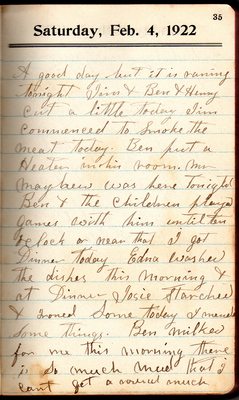 35
Saturday, Feb. 4, 1922
A good day but it is raning
tonight Jim & Ben & Henry
cut a little today Jim
commenced to smoke the
meat today. Ben put a
Heater in his room. Mr
Mayhew was here tonight
Ben & the children played
games with him until ten
o clock or near that I got
Dinner today Edna washed
the dishes this morning &
at Dinner Josie Starched
& Ironed some today I mended
some things. Ben milked
for me this morning there
is so much mud that I
cant get a round much